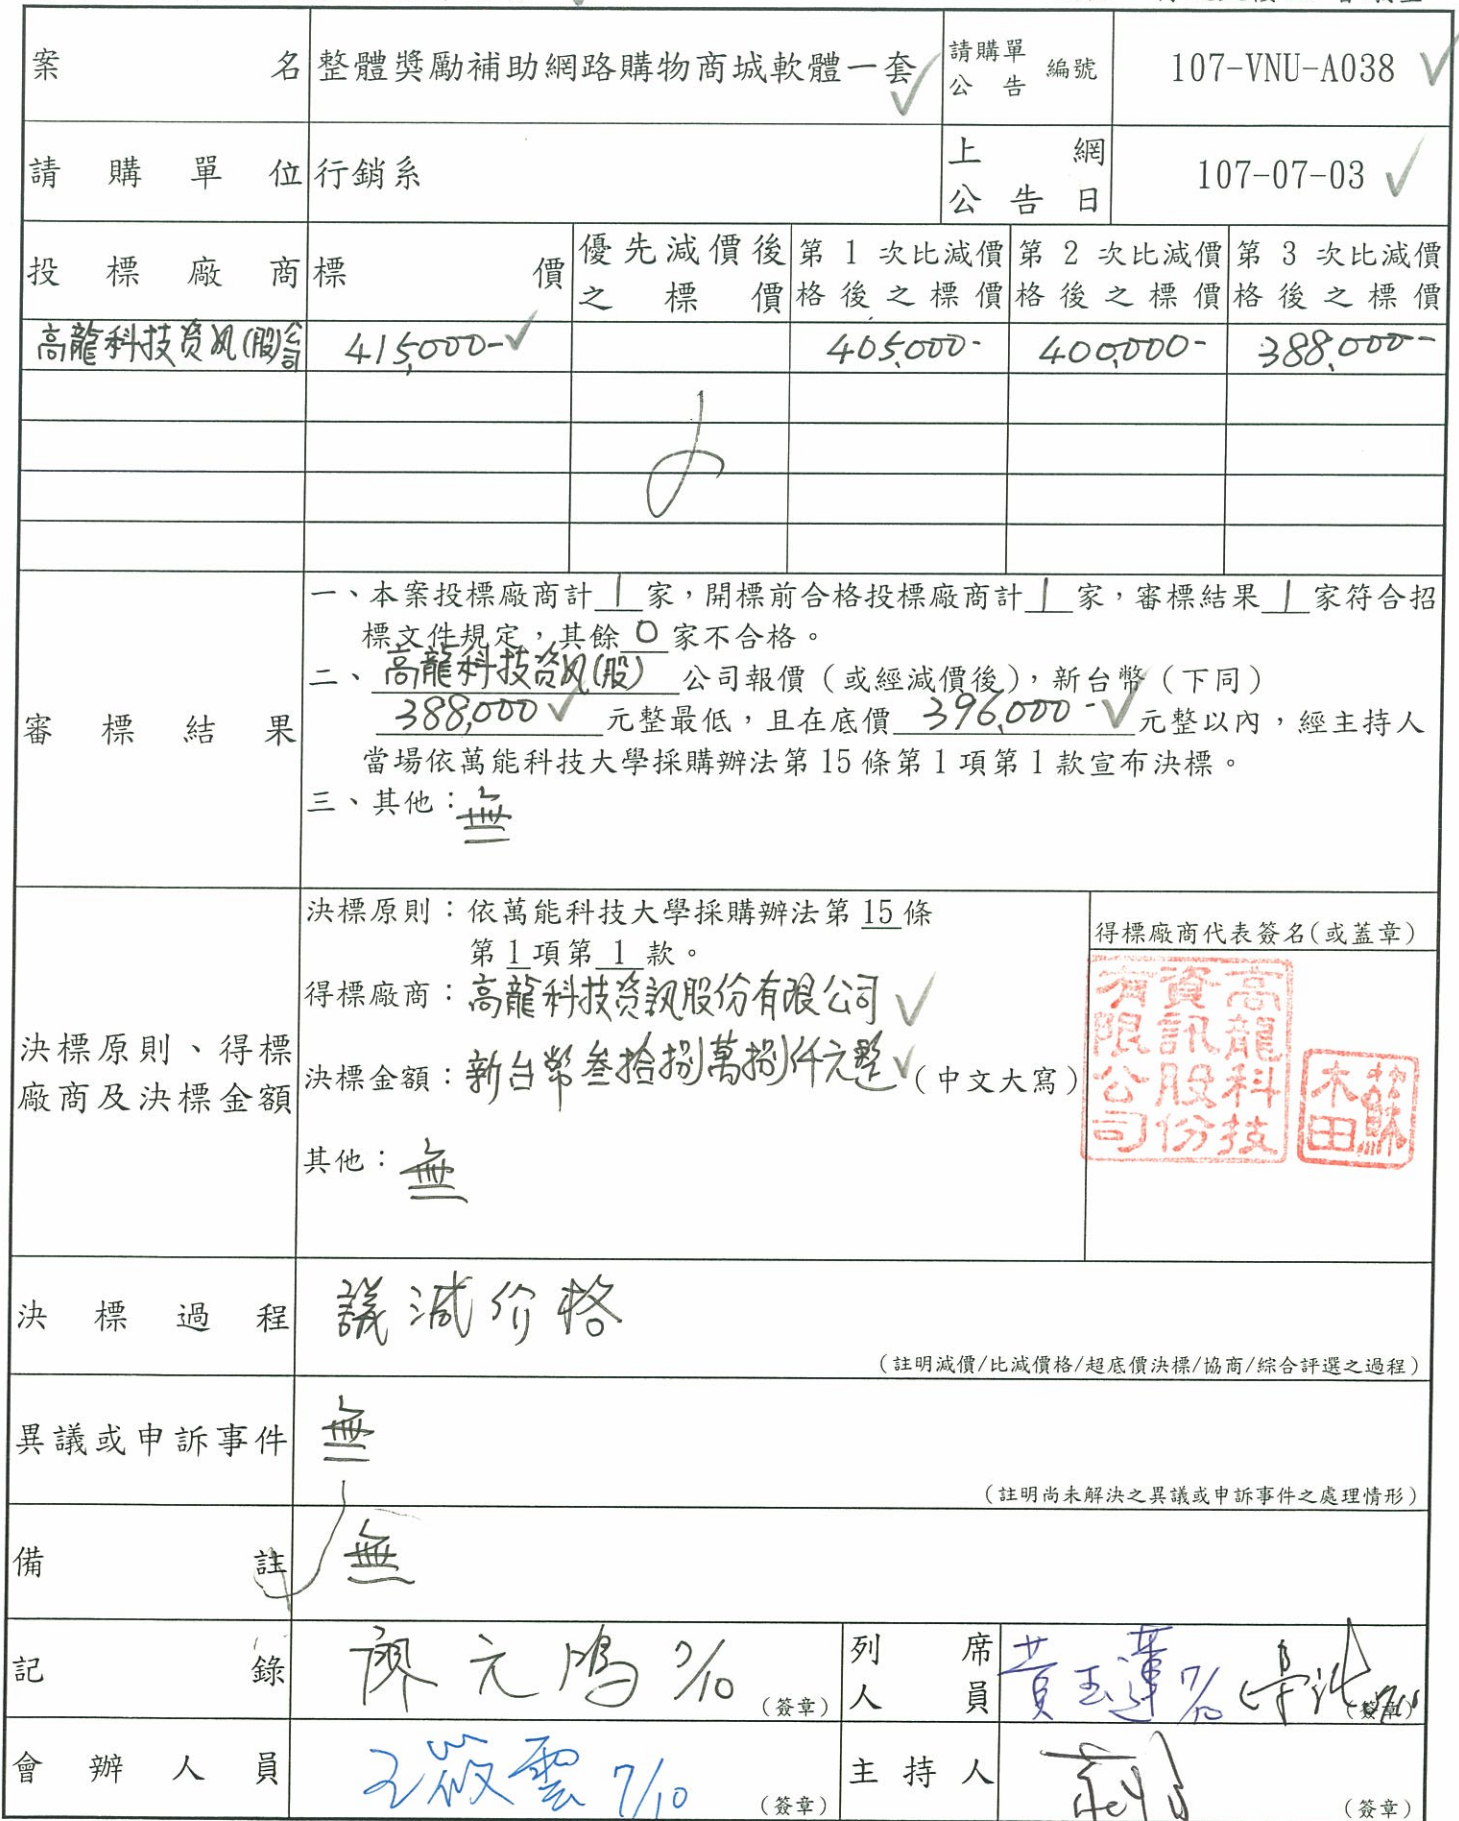 案名 整體獎勵補助網路購物商城軟體一套 請購單公告 編號 107-VNU-A038
請購單位 行銷系 上網公告日 107-07-03
投標廠商 標價 優先減價後之標價 第1次比減價格後之標價 第2次比減價格後之標價 第3次比減價格後之標價
高龍科技資訊(股)公司 415,000- 405,000- 400,000- 388,000-
審標結果
一、本案投標廠商計 1 家，開標前合格投標廠商計 1 家，審標結果 1 家符合招
標文件規定，其餘 0 家不合格。
二、高龍科技資訊(股) 公司報價（或經減價後），新台幣（下同）
388,000 元整最低，且在底價 396,000- 元整以內，經主持人
當場依萬能科技大學採購辦法第15條第1項第1款宣布決標。
三、其他：無
決標原則、得標
廠商及決標金額
決標原則：依萬能科技大學採購辦法第 15 條
第 1 項第 1 款。
得標廠商：高龍科技資訊股份有限公司
決標金額：新台幣叁拾捌萬捌仟元整（中文大寫）
其他：無
得標廠商代表簽名(或蓋章)
高龍科技
資訊股份
有限公司
蘇
木田
決標過程 議減价格
（註明減價/比減價格/超底價決標/協商/綜合評選之過程）
異議或申訴事件 無
（註明尚未解決之異議或申訴事件之處理情形）
備註 無
記錄 廖元鴻 7/10 （簽章） 列席人員 黃玉蓮 7/10 （簽章）
會辦人員 王筱雲 7/10 （簽章） 主持人 （簽章）